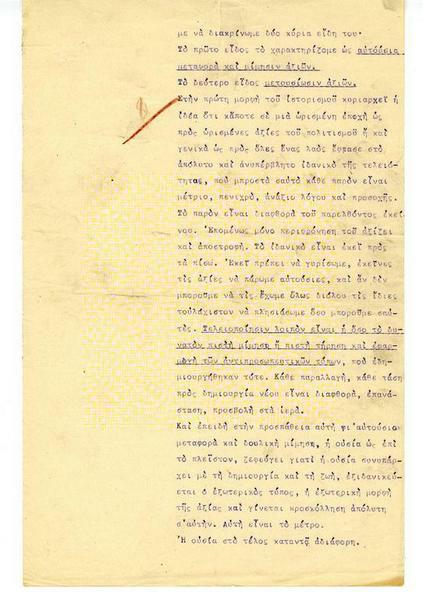 με νὰ διακρίνωμε δύο κύρια εἴδη του·
Τὸ πρῶτο εἶδος τὸ χαρακτηρίζομε ὡς αὐτούσια
μεταφορὰ καὶ μίμησιν ἀξιῶν.
Τὸ δεύτερο εἶδος μετουσίωσιν ἀξιῶν.
Στὴν πρώτη μορφὴ τοῦ ἱστορισμοῦ κυριαρχεῖ ἡ
ἰδέα ὅτι κάποτε σὲ μιὰ ὡρισμένη ἐποχὴ ὡς
πρὸς ὡρισμένες ἀξίες τοῦ πολιτισμοῦ ἢ καὶ
γενικὰ ὡς πρὸς ὅλες ἕνας λαὸς ἔφτασε στὸ
ἀπόλυτο καὶ ἀνυπέρβλητο ἰδανικὸ τῆς τελειό-
τητας, ποὺ μπροστὰ σαὐτὸ κάθε παρὸν εἶναι
μέτριο, πενιχρό, ἀνάξιο λόγου καὶ προσοχῆς.
Τὸ παρὸν εἶναι διαφθορὰ τοῦ παρελθόντος ἐκεί-
νου. Ἑπομένως μόνο περιφρόνηση τοῦ ἀξίζει
καὶ ἀποστροφή. Τὸ ἰδανικὸ εἶναι ἐκεῖ πρὸς
τὰ πίσω. Ἐκεῖ πρέπει νὰ γυρίσωμε, ἐκεῖνες
τὶς ἀξίες νὰ πάρωμε αὐτούσιες, καὶ ἂν δὲν
μποροῦμε νὰ τὶς ἔχωμε ὅλως διόλου τὶς ἴδιες
τοὐλάχιστον νὰ πλησιάσωμε ὅσο μποροῦμε σαὐ-
τές. Τελειοποίησιν λοιπὸν εἶναι ἡ ὅσο τὸ δυ-
νατὸν πιστὴ μίμηση ἢ πιστὴ τήρηση καὶ ἐφαρ-
μογὴ τῶν ἀντιπροσωπευτικῶν τύπων, ποὺ ἐδη-
μιουργήθηκαν τότε. Κάθε παραλλαγή, κάθε τάση
πρὸς δημιουργία νέου εἶναι διαφθορά, ἐπανά-
σταση, προσβολὴ στὰ ἱερά.
Καὶ ἐπειδὴ στὴν προσπάθεια αὐτὴ γι'αὐτούσια
μεταφορὰ καὶ δουλικὴ μίμηση, ἡ οὐσία ὡς ἐπὶ
τὸ πλεῖστον, ξεφεύγει γιατὶ ἡ οὐσία συνυπάρ-
χει μὲ τὴ δημιουργία καὶ τὴ ζωή, ἐξιδανικεύ-
εται ὁ ἐξωτερικὸς τύπος, ἡ ἐξωτερικὴ μορφὴ
τῆς ἀξίας καὶ γίνεται προσκόλληση ἀπόλυτη
σ'αὐτήν. Αὐτὴ εἶναι τὸ μέτρο.
Ἡ οὐσία στὸ τέλος καταντᾷ ἀδιάφορη.